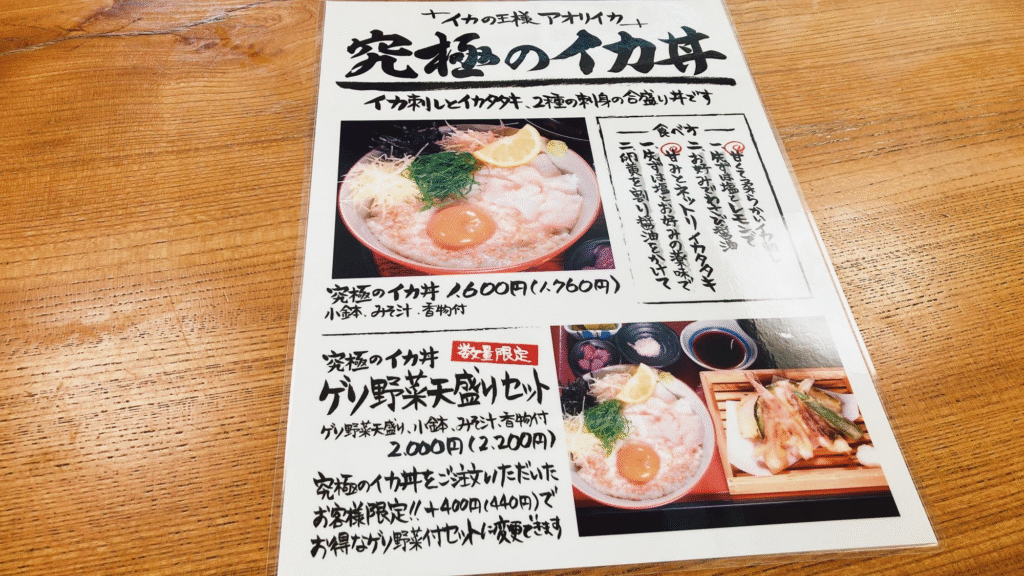 イカの王様 アオリイカ
究極のイカ丼
イカ刺しとイカタタキ、2種の刺身の合盛り丼です
食べ方
一、先ずは塩とレモンで
二、お好みでわさび醤油
甘みとネットリイカタタキ
一、先ずは塩とお好みの薬味で
二、卵黄を割り醤油をかけて
究極のイカ丼 1,600円(1,760円)
小鉢、みそ汁、香物付
究極のイカ丼 数量限定
ゲソ野菜天盛りセット
ゲソ野菜天盛り、小鉢、みそ汁、香物付
2,000円(2,200円)
究極のイカ丼をご注文いただいた
お客様限定!! +400円(440円)で
お得なゲソ野菜付セットに変更できます